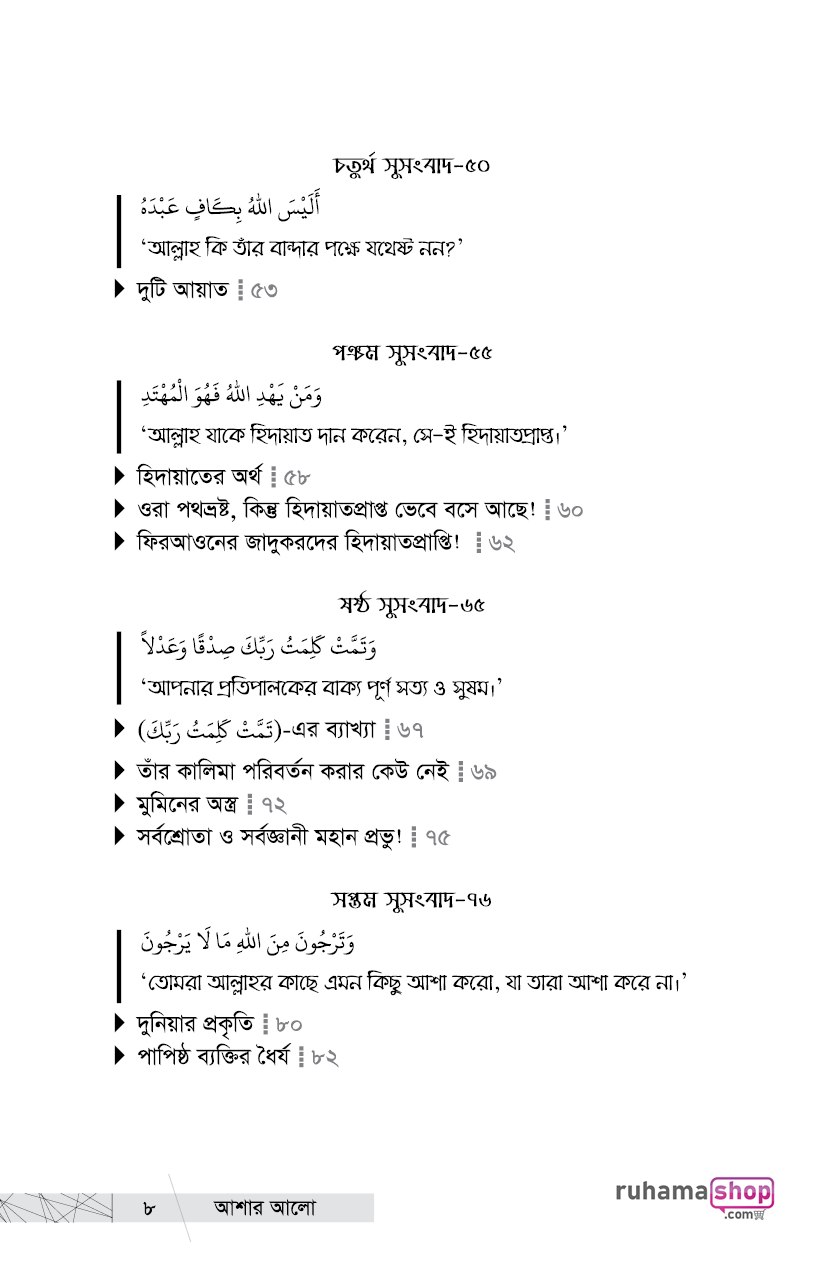 চতুর্থ সুসংবাদ-৫০
أَلَيْسَ اللهُ بِكَافٍ عَبْدَهُ
‘আল্লাহ কি তাঁর বান্দার পক্ষে যথেষ্ট নন?’
দুটি আয়াত ৫৩
পঞ্চম সুসংবাদ-৫৫
وَمَنْ يَهْدِ اللهُ فَهُوَ الْمُهْتَدِ
‘আল্লাহ যাকে হিদায়াত দান করেন, সে-ই হিদায়াতপ্রাপ্ত।’
হিদায়াতের অর্থ ৫৮
ওরা পথভ্রষ্ট, কিন্তু হিদায়াতপ্রাপ্ত ভেবে বসে আছে! ৬০
ফিরআওনের জাদুকরদের হিদায়াতপ্রাপ্তি! ৬২
ষষ্ঠ সুসংবাদ-৬৫
وَتَمَّتْ كَلِمَتُ رَبِّكَ صِدْقًا وَعَدْلاً
‘আপনার প্রতিপালকের বাক্য পূর্ণ সত্য ও সুষম।’
(تَمَّتْ كَلِمَتُ رَبِّكَ)-এর ব্যাখ্যা ৬৭
তাঁর কালিমা পরিবর্তন করার কেউ নেই ৬৯
মুমিনের অস্ত্র ৭২
সর্বশ্রোতা ও সর্বজ্ঞানী মহান প্রভু! ৭৫
সপ্তম সুসংবাদ-৭৬
وَتَرْجُونَ مِنَ اللهِ مَا لَا يَرْجُونَ
‘তোমরা আল্লাহর কাছে এমন কিছু আশা করো, যা তারা আশা করে না।’
দুনিয়ার প্রকৃতি ৮০
পাপিষ্ঠ ব্যক্তির ধৈর্য ৮২
৮ আশার আলো
ruhamashop
.com